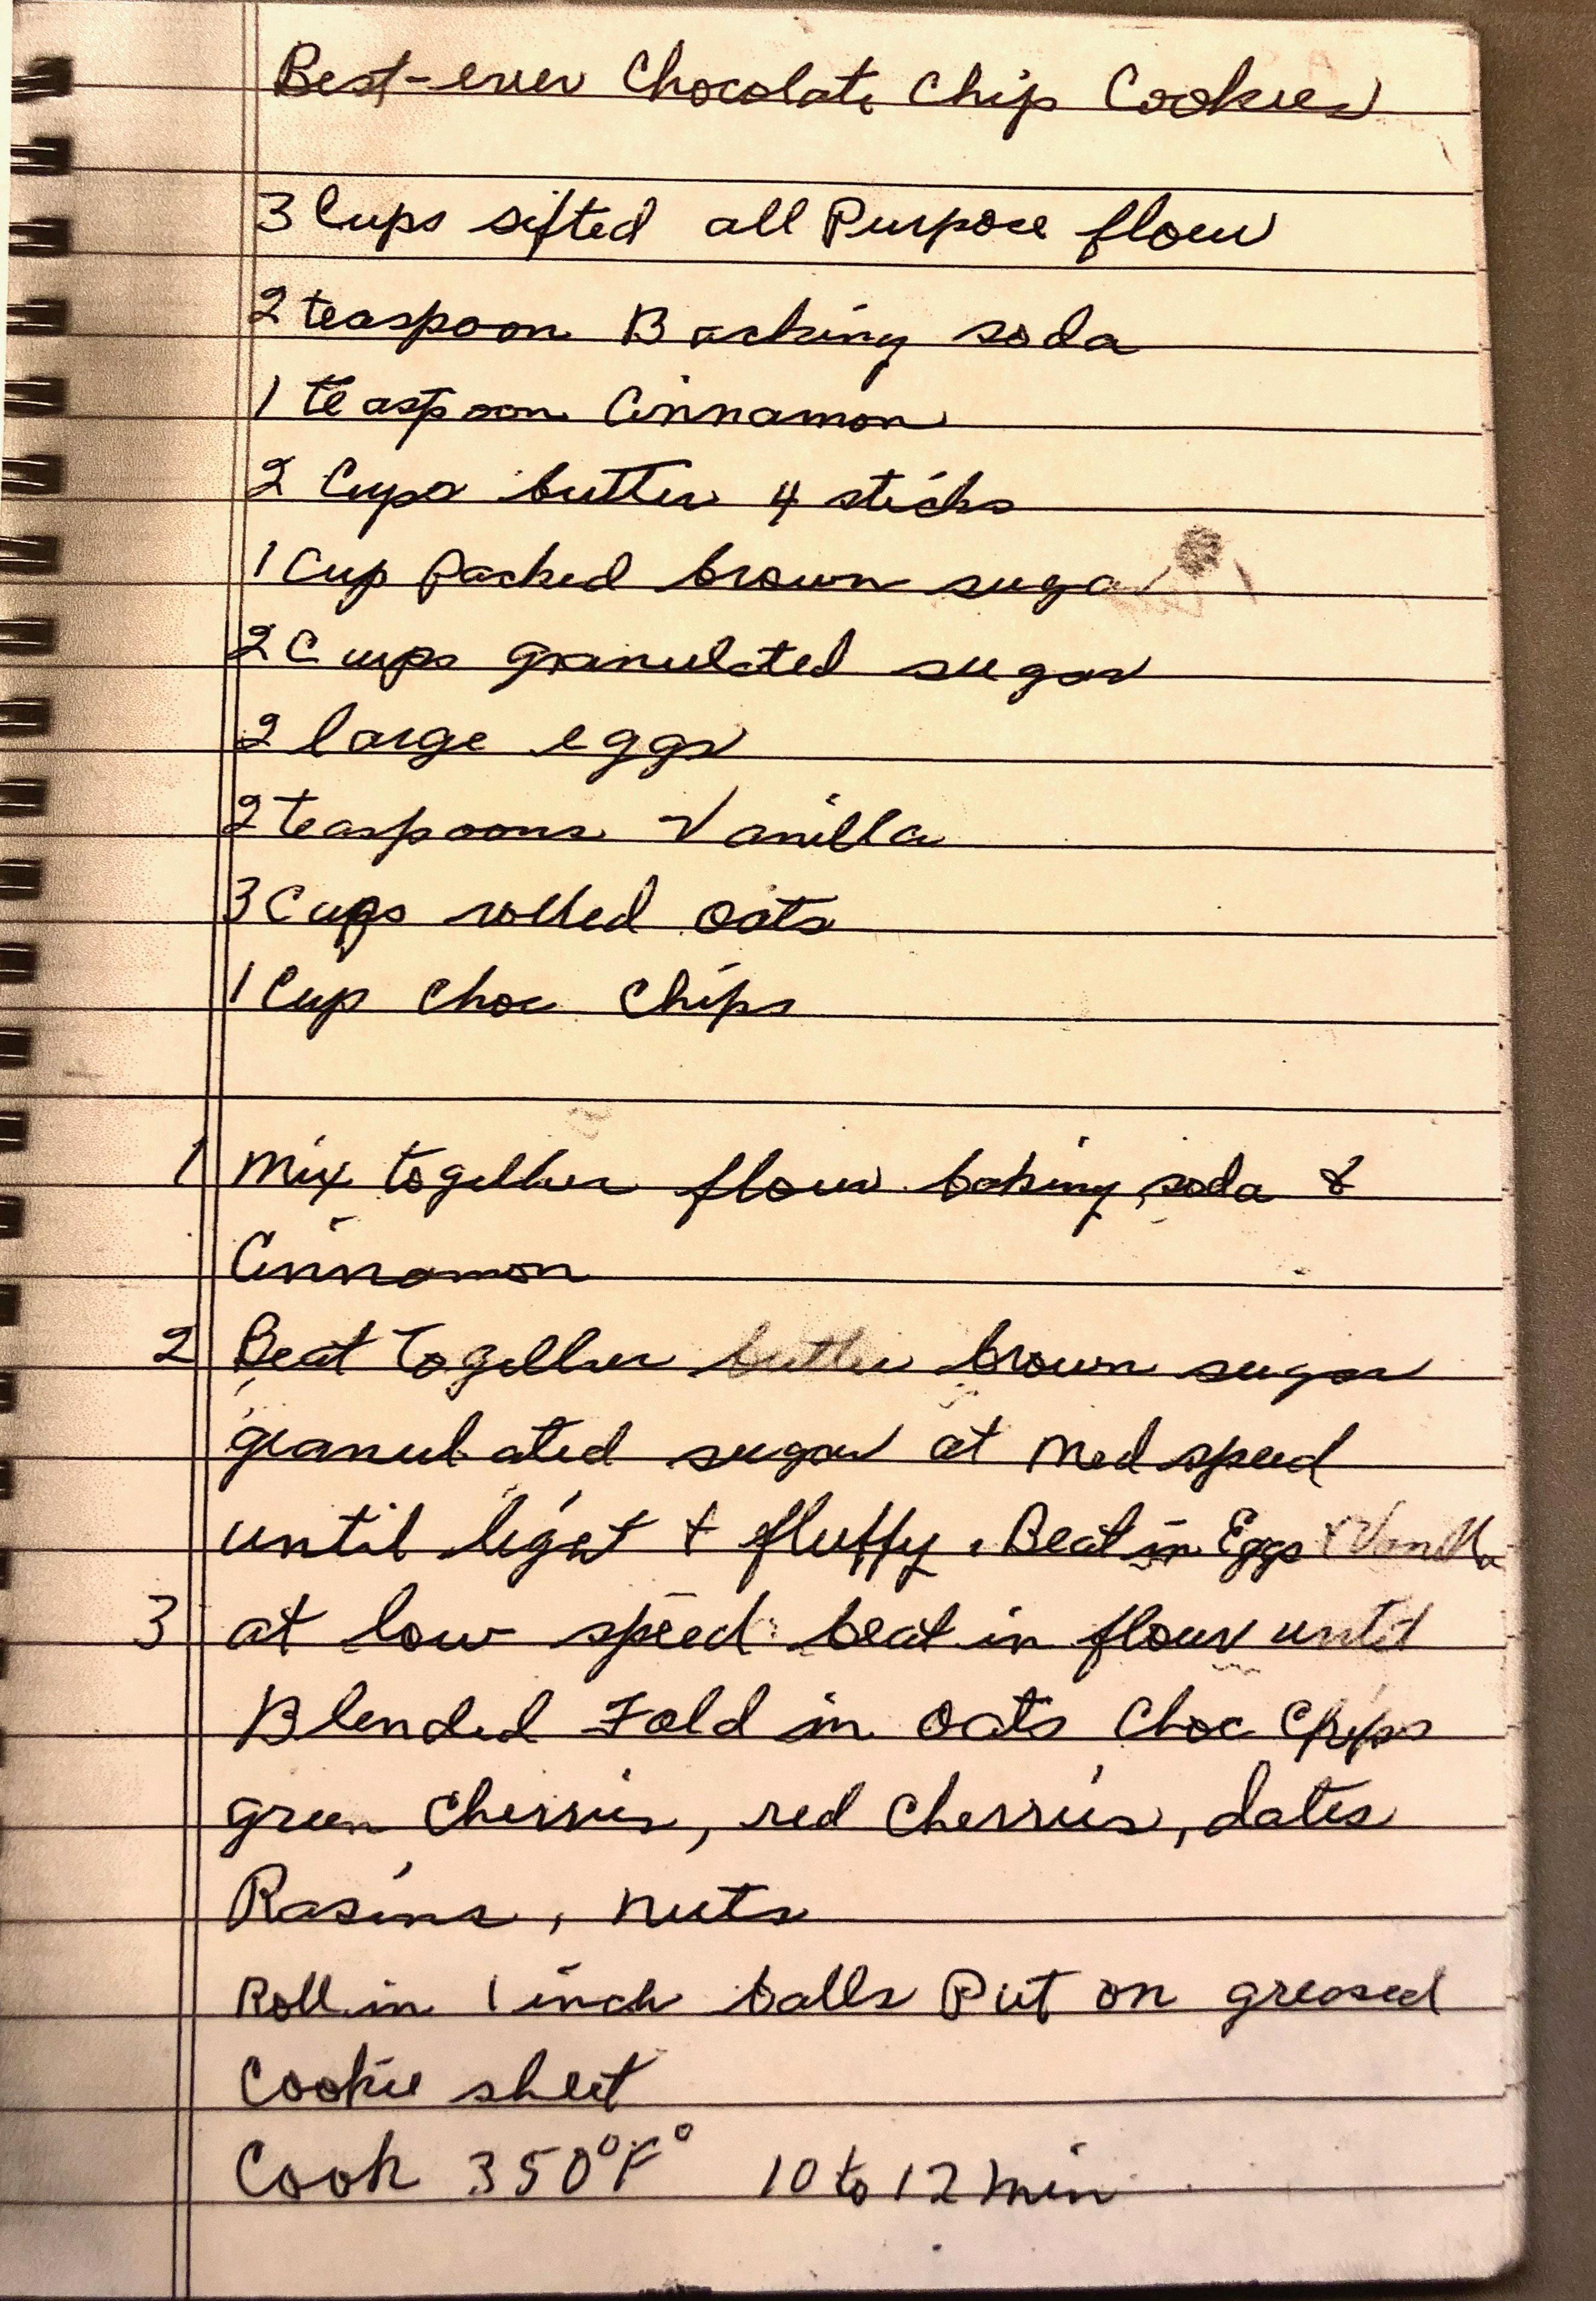 Best-ever Chocolate Chip Cookies
3 Cups sifted all Purpose flour
2 teaspoon Backing soda
1 teaspoon Cinnamon
2 Cups butter 4 sticks
1 Cup Packed brown sugar
2 Cups granulated sugar
2 large eggs
2 teaspoons Vanilla
3 Cups rolled oats
1 Cup Choc Chips
1 Mix together flour baking soda &
Cinnamon
2 Beat Together butter brown sugar
granulated sugar at Med speed
until light + fluffy. Beat in Eggs + Vanilla
3 at low speed beat in flour until
Blended Fold in oats Choc Chips
green Cherries, red Cherries, dates
Rasins, nuts
Roll in 1 inch balls Put on greased
Cookie sheet
Cook 350°F° 10 to 12 min